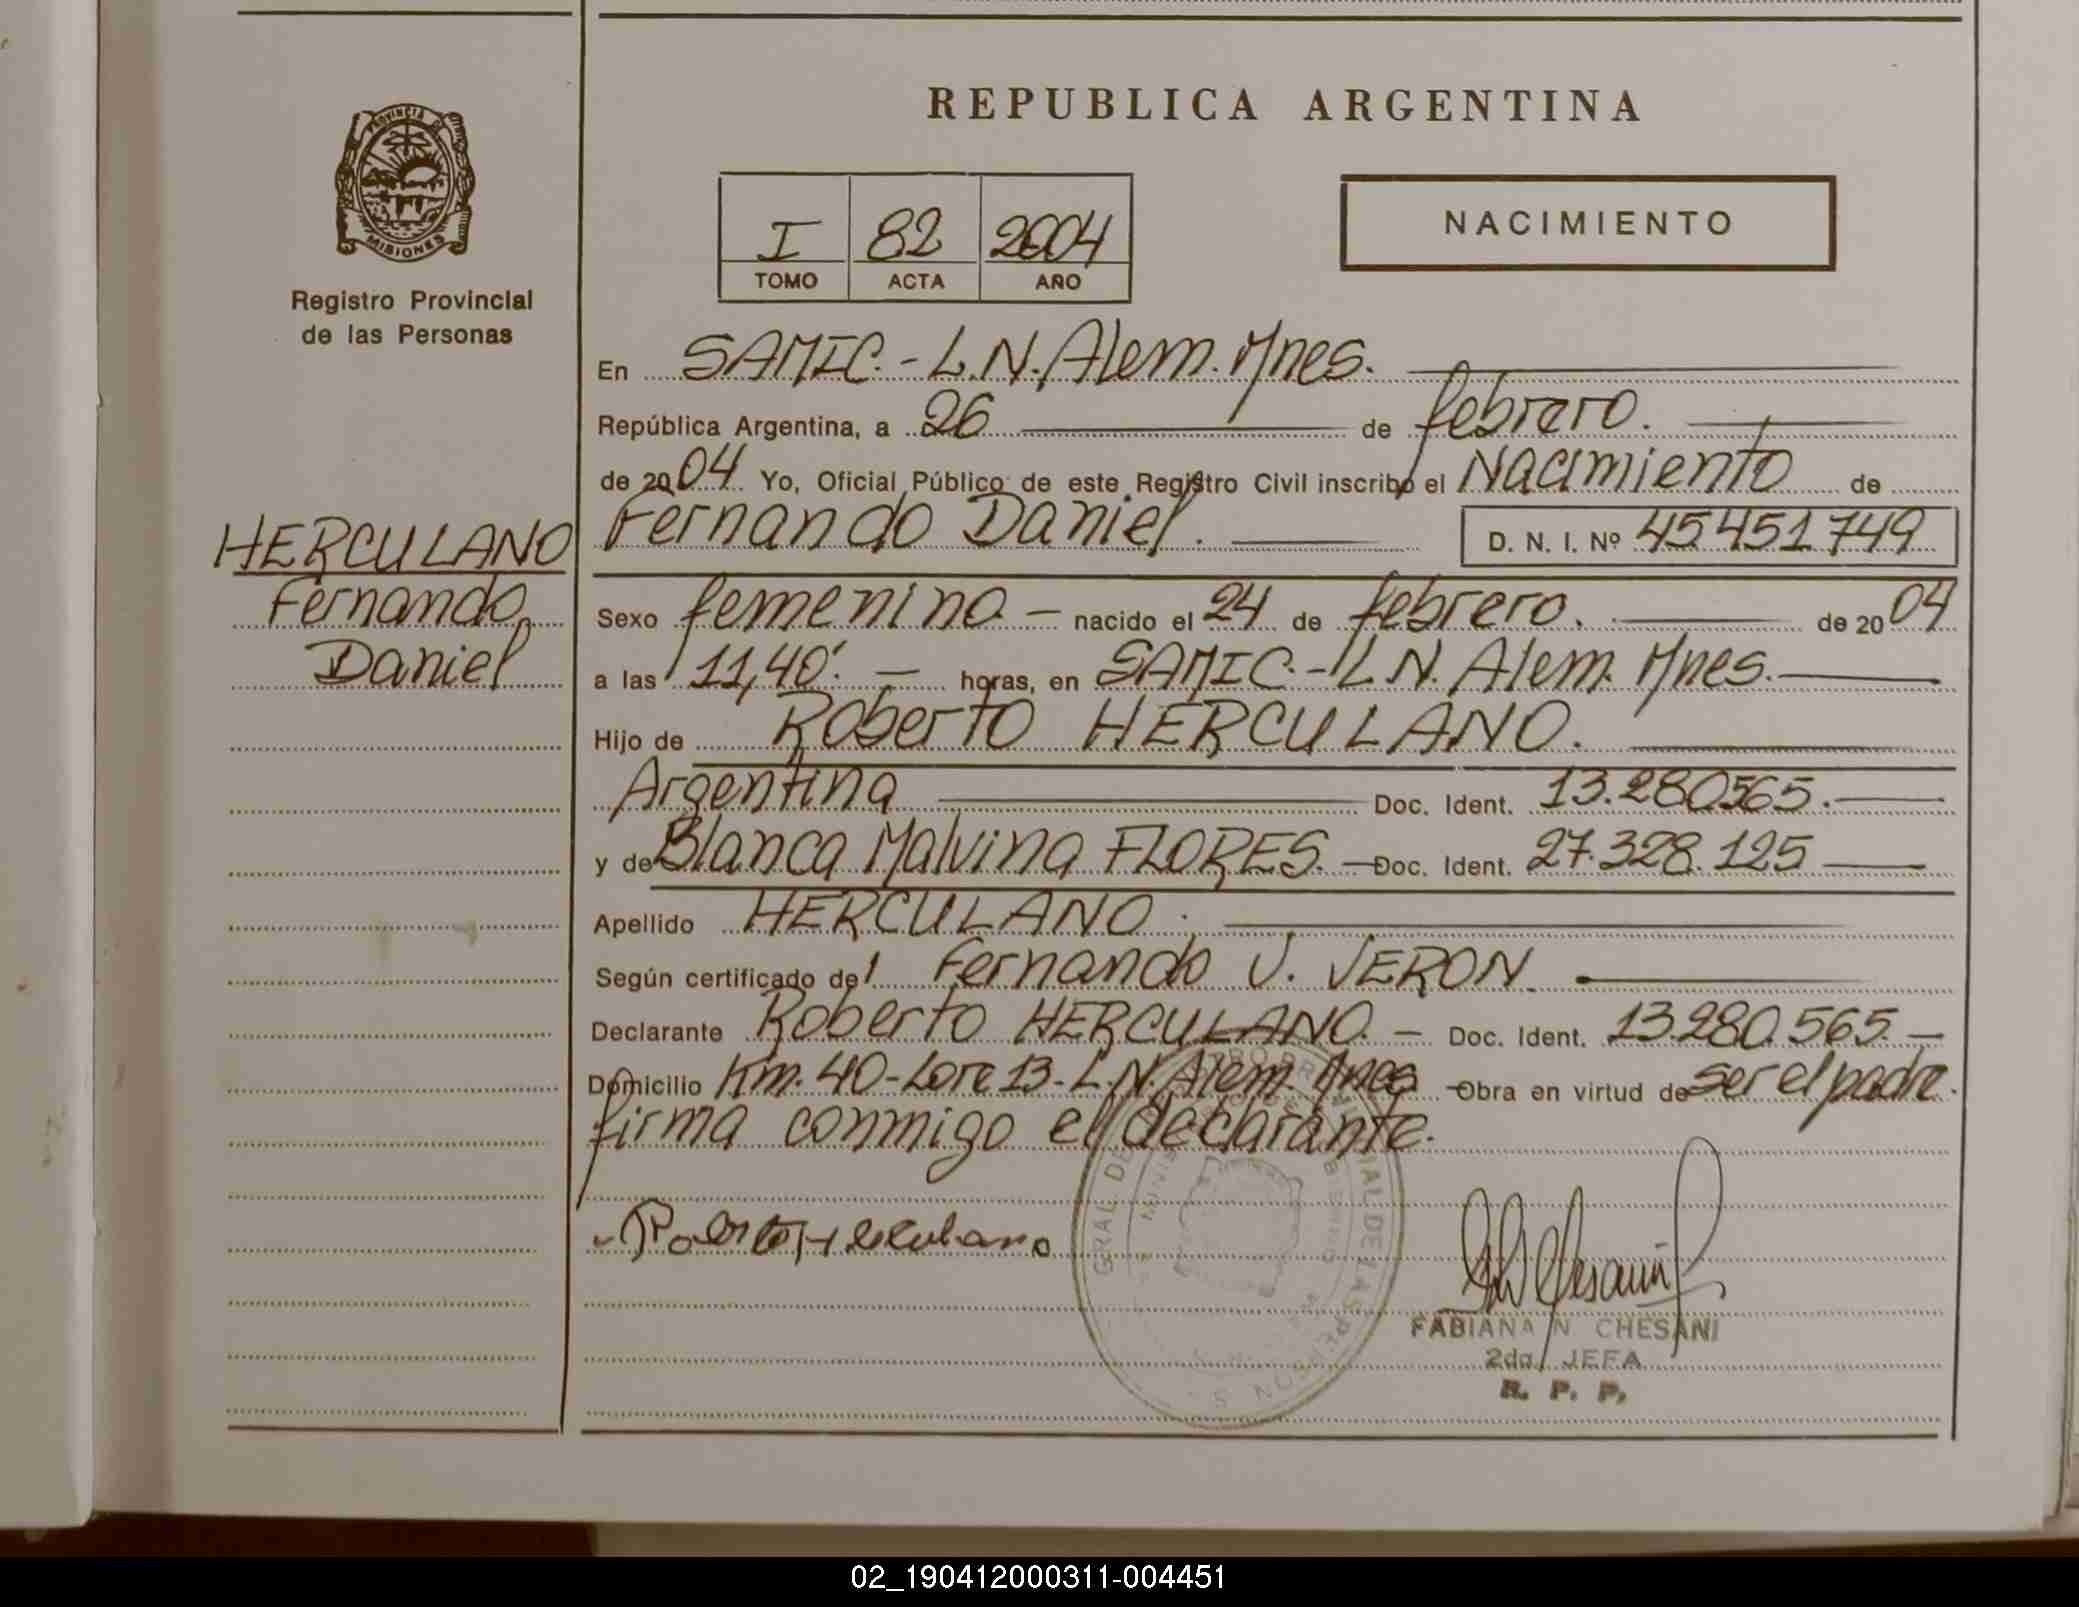 PROVINCIA DE
MISIONES
Registro Provincial
de las Personas
HERCULANO
Fernando
Daniel
REPUBLICA ARGENTINA
I 82 2004
TOMO ACTA AÑO
NACIMIENTO
En SAMIC.-L.N.Alem.Mnes.
República Argentina, a 26 de febrero.
de 2004 Yo, Oficial Público de este Registro Civil inscribo el Nacimiento de
Fernando Daniel. D. N. I. Nº 45451749
Sexo femenino - nacido el 24 de febrero. de 2004
a las 11,40'. - horas, en SAMIC.-L.N. Alem. Mnes.
Hijo de Roberto HERCULANO.
Argentina Doc. Ident. 13.280565.
y de Blanca Malvina FLORES. Doc. Ident. 27.328.125
Apellido HERCULANO.
Según certificado de Fernando J. VERON.
Declarante Roberto HERCULANO. - Doc. Ident. 13.280.565.-
Domicilio Km. 40-Lote 13-L.N. Alem. Mnes Obra en virtud de ser el padre.
firma conmigo el declarante.
Roberto Herculano
FABIANA N CHESANI
2da JEFA
R. P. P.
02_190412000311-004451